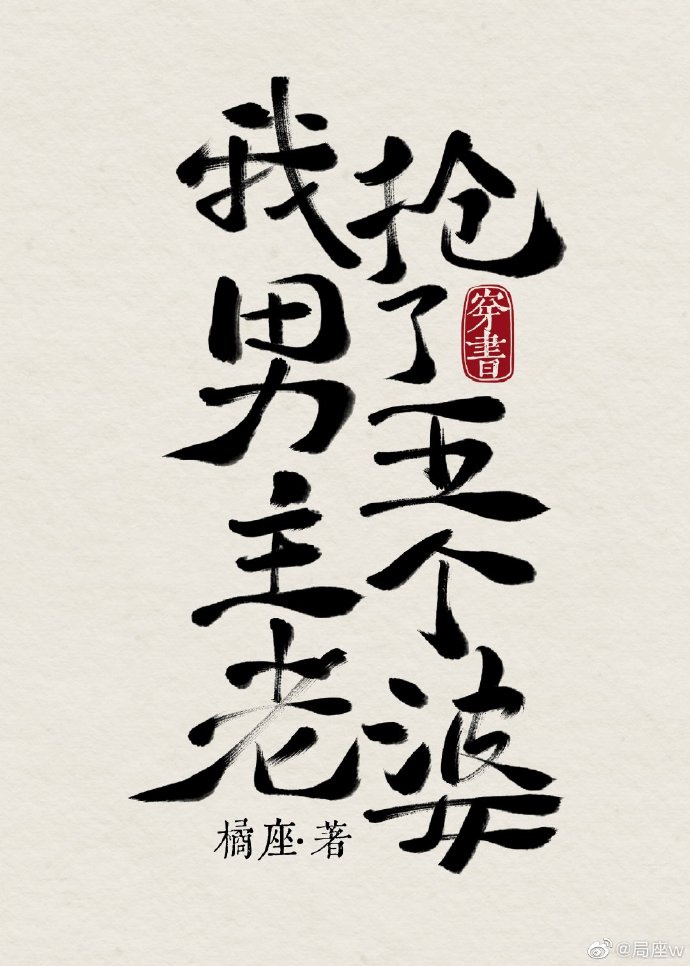 我抢了
男主五个
老婆
穿書
橘座·著
@局座w